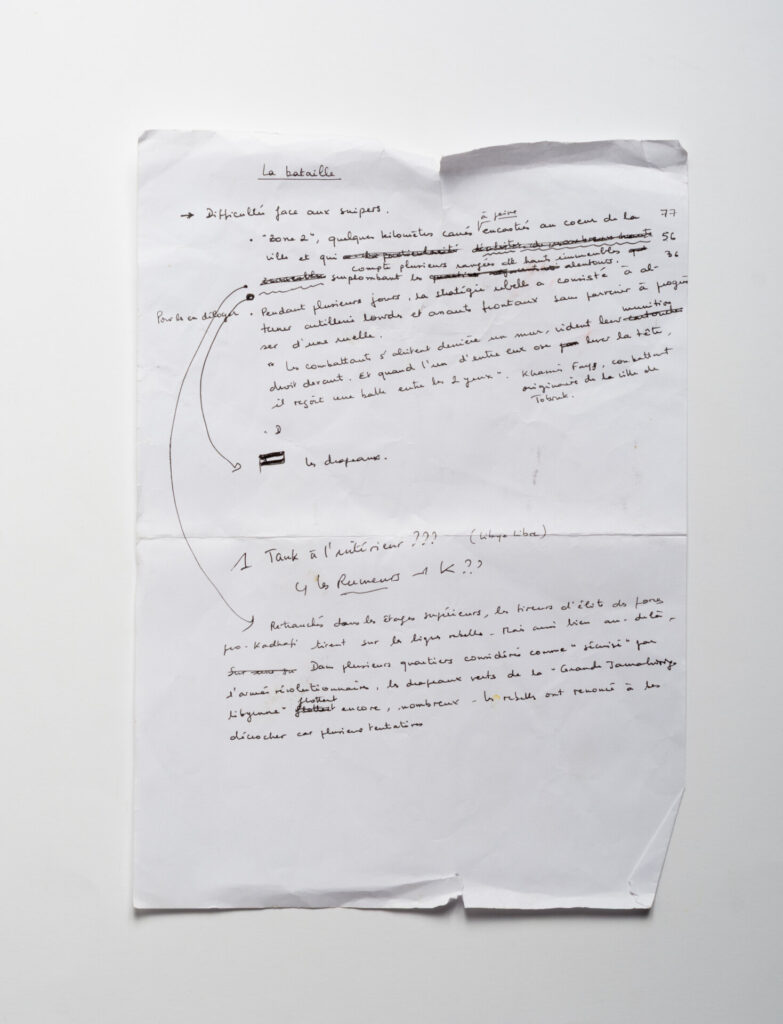 La bataille
→ Difficultés face aux snipers.
à peine
• "Zone 2", quelques kilomètres carrés encastrés au coeur de la 77
ville et qui a la particularité d'abriter de nombreux hauts 56
compte plusieurs rangées de hauts immeubles qui 36
immeubles surplombant les alentours.
Pour les en déloger
• Pendant plusieurs jours, la stratégie rebelle a consisté à al-
terner artillerie lourde et assauts frontaux sans parvenir à progres
ser d'une ruelle.
munition
" Les combattants s'abritent derrière un mur, vident leur
droit devant. Et quand l'un d'entre eux ose lever la tête,
il reçoit une balle entre les 2 yeux". Khamis Fayg, combattant
originaire de la ville de
Tobruk.
. D
les drapeaux.
1 Tank à l'intérieur ??? (Libya Libre)
↳ les Rumeurs → K ??
Retranchés dans les étages supérieurs, les tireurs d'élite des forces
pro-Kadhafi tirent sur les lignes rebelles - Mais aussi bien au-delà -
Dans plusieurs quartiers considérés comme "sécurisé" par
l'armée révolutionnaire, les drapeaux verts de la "Grande Jamahiriya
flottent
libyenne" flottent encore, nombreux - les rebelles ont renoncé à les
décrocher car plusieurs tentatives